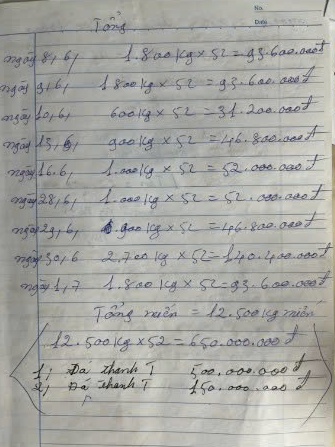 No.
Date
Tổng
ngày 8, 6, 1.800 kg x 52 = 93.600.000đ
ngày 9, 6, 1 800 kg x 52 = 93.600.000đ
ngày 10, 6, 600 kg x 52 = 31.200.000đ
ngày 15, 6, 900 kg x 52 = 46.800.000đ
ngày 16.6, 1.000 kg x 52 = 52.000.000đ
ngày 28, 6, 1.000 kg x 52 = 52.000.000đ
ngày 29, 6, 900 kg x 52 = 46.800.000đ
ngày 30, 6 2.700 kg x 52 = 140.400.000đ
ngày 1, 7 1.800 kg x 52 = 93.600.000đ
Tổng miến = 12.500 kg miến
12.500 kg x 52 = 650.000.000đ
1, Đã thanh T 500.000.000đ
2, Đã thanh T 150.000.000đ